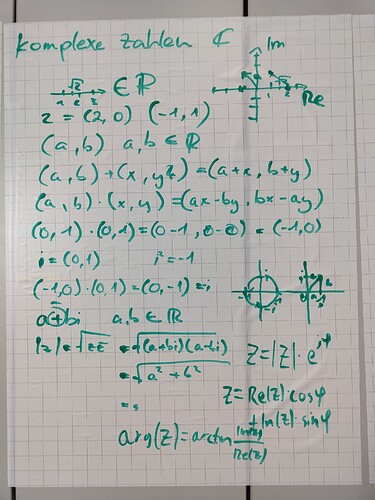 komplexe zahlen ℂ
Im
√2 ∈ ℝ
1 2 3
1 2
Re
z = (2,0) (-1,1)
(a,b) a,b ∈ ℝ
(a,b)+(x,y)=(a+x, b+y)
(a,b)·(x,y)=(ax-by, bx-ay)
(0,1)·(0,1)=(0-1, 0-0) = (-1,0)
i=(0,1) i²=-1
(-1,0)·(0,1)=(0,-1)=-i
a+bi a,b ∈ ℝ
|z|=√zz̄ =√(a+bi)(a-bi)
z=|z|·e^iφ
=√a²+b²
z=Re(z) cosφ
+Im(z)·sinφ
arg(z)=arctan Im(z)/Re(z)